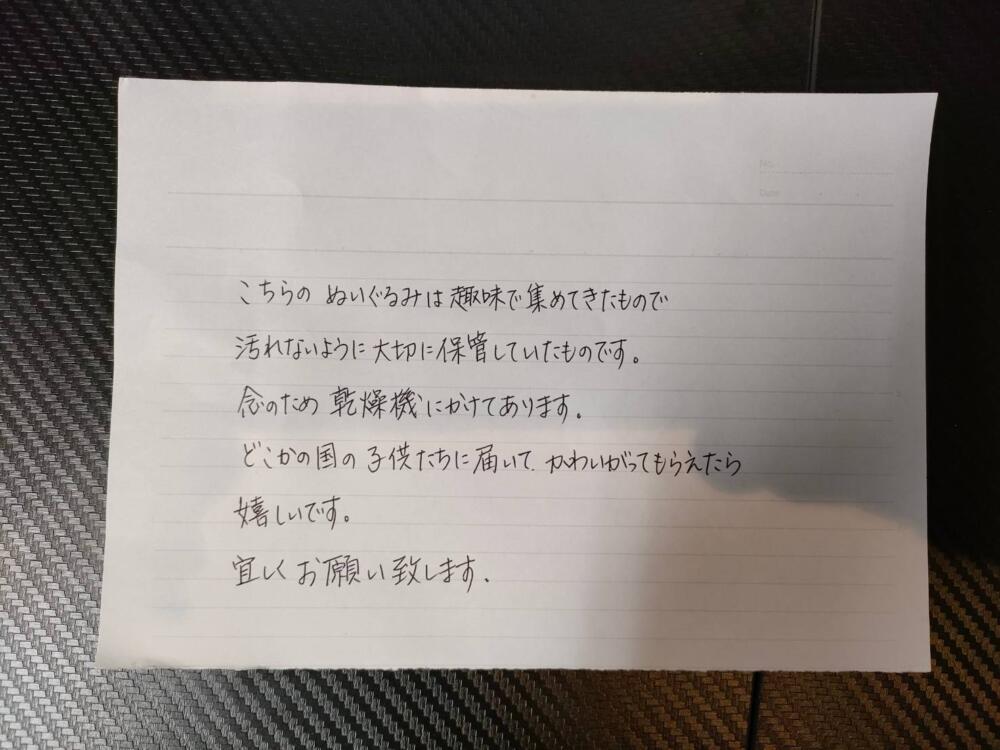 No.
Date
こちらの ぬいぐるみは趣味で集めてきたもので
汚れないように大切に保管していたものです。
念のため 乾燥機にかけてあります。
どこかの国の子供たちに届いて、かわいがってもらえたら
嬉しいです。
宜しくお願い致します.